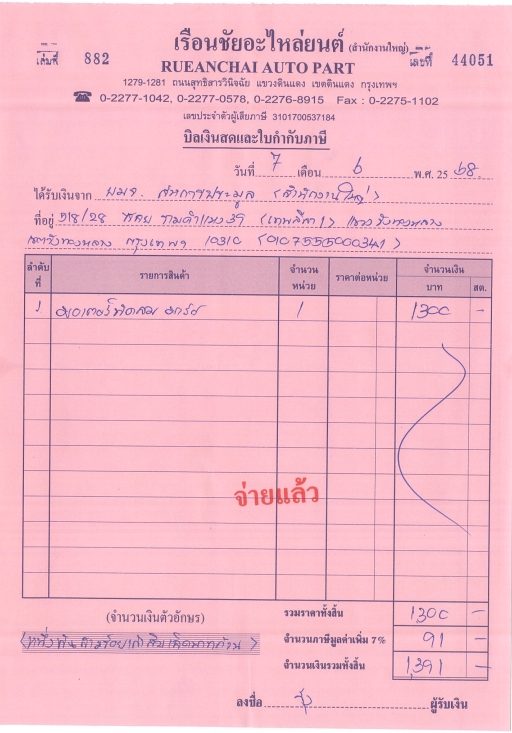 เรือนชัยอะไหล่ยนต์ (สำนักงานใหญ่)
เล่มที่ 882 เลขที่ 44051
RUEANCHAI AUTO PART
1279-1281 ถนนสุทธิสารวินิจฉัย แขวงดินแดง เขตดินแดง กรุงเทพฯ
☎ 0-2277-1042, 0-2277-0578, 0-2276-8915 Fax : 0-2275-1102
เลขประจำตัวผู้เสียภาษี 3101700537184
บิลเงินสดและใบกำกับภาษี
วันที่ 7 เดือน 6 พ.ศ. 25 68
ได้รับเงินจาก บมจ. สหการประมูล (สำนักงานใหญ่)
ที่อยู่ 518/28 ซอย รามคำแหง 39 (เทพลีลา 1) แขวงวังทองหลาง
เขตวังทองหลาง กรุงเทพฯ 10310 (0107555000341)
ลำดับที่ รายการสินค้า จำนวนหน่วย ราคาต่อหน่วย จำนวนเงิน
บาท สต.
1 1 1300 -
จ่ายแล้ว
(จำนวนเงินตัวอักษร) รวมราคาทั้งสิ้น 1300 -
(หนึ่งพันสามร้อยเก้าสิบเอ็ดบาทถ้วน) จำนวนภาษีมูลค่าเพิ่ม 7% 91 -
จำนวนเงินรวมทั้งสิ้น 1,391 -
ลงชื่อ ผู้รับเงิน